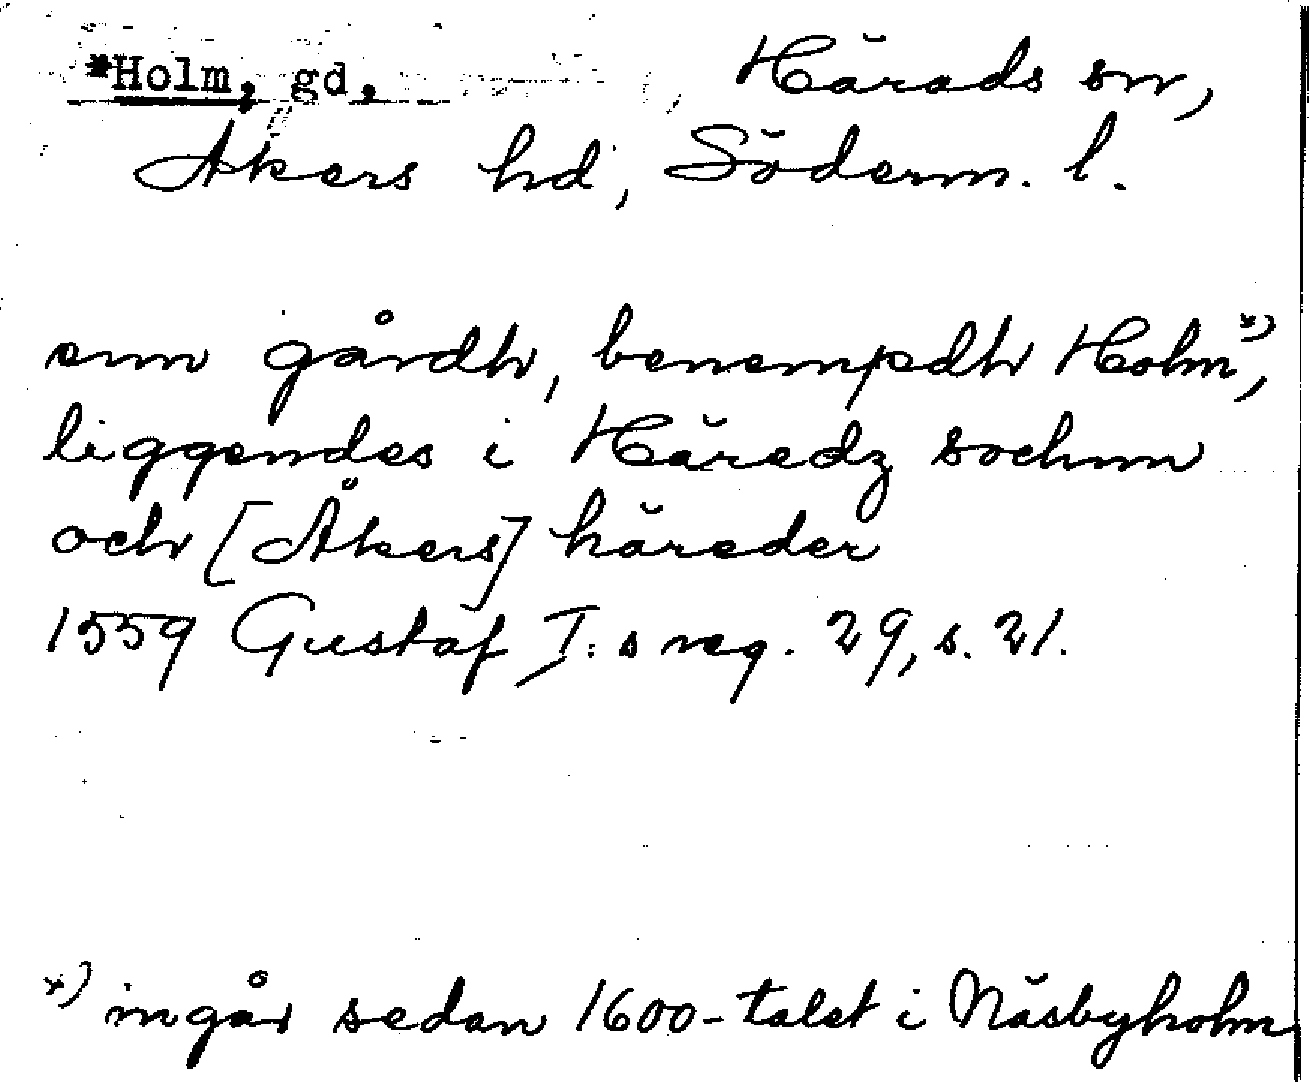 *Holm, gd, Härads sn,
Åkers hd, Söderm. l.
enn gårdh, benempdh Holm x),
liggendes i Häredz sochnn
och [Åkers] häreder
1559 Gustaf I:s reg. 29, s. 21.
x) ingår sedan 1600-talet i Näsbyholm